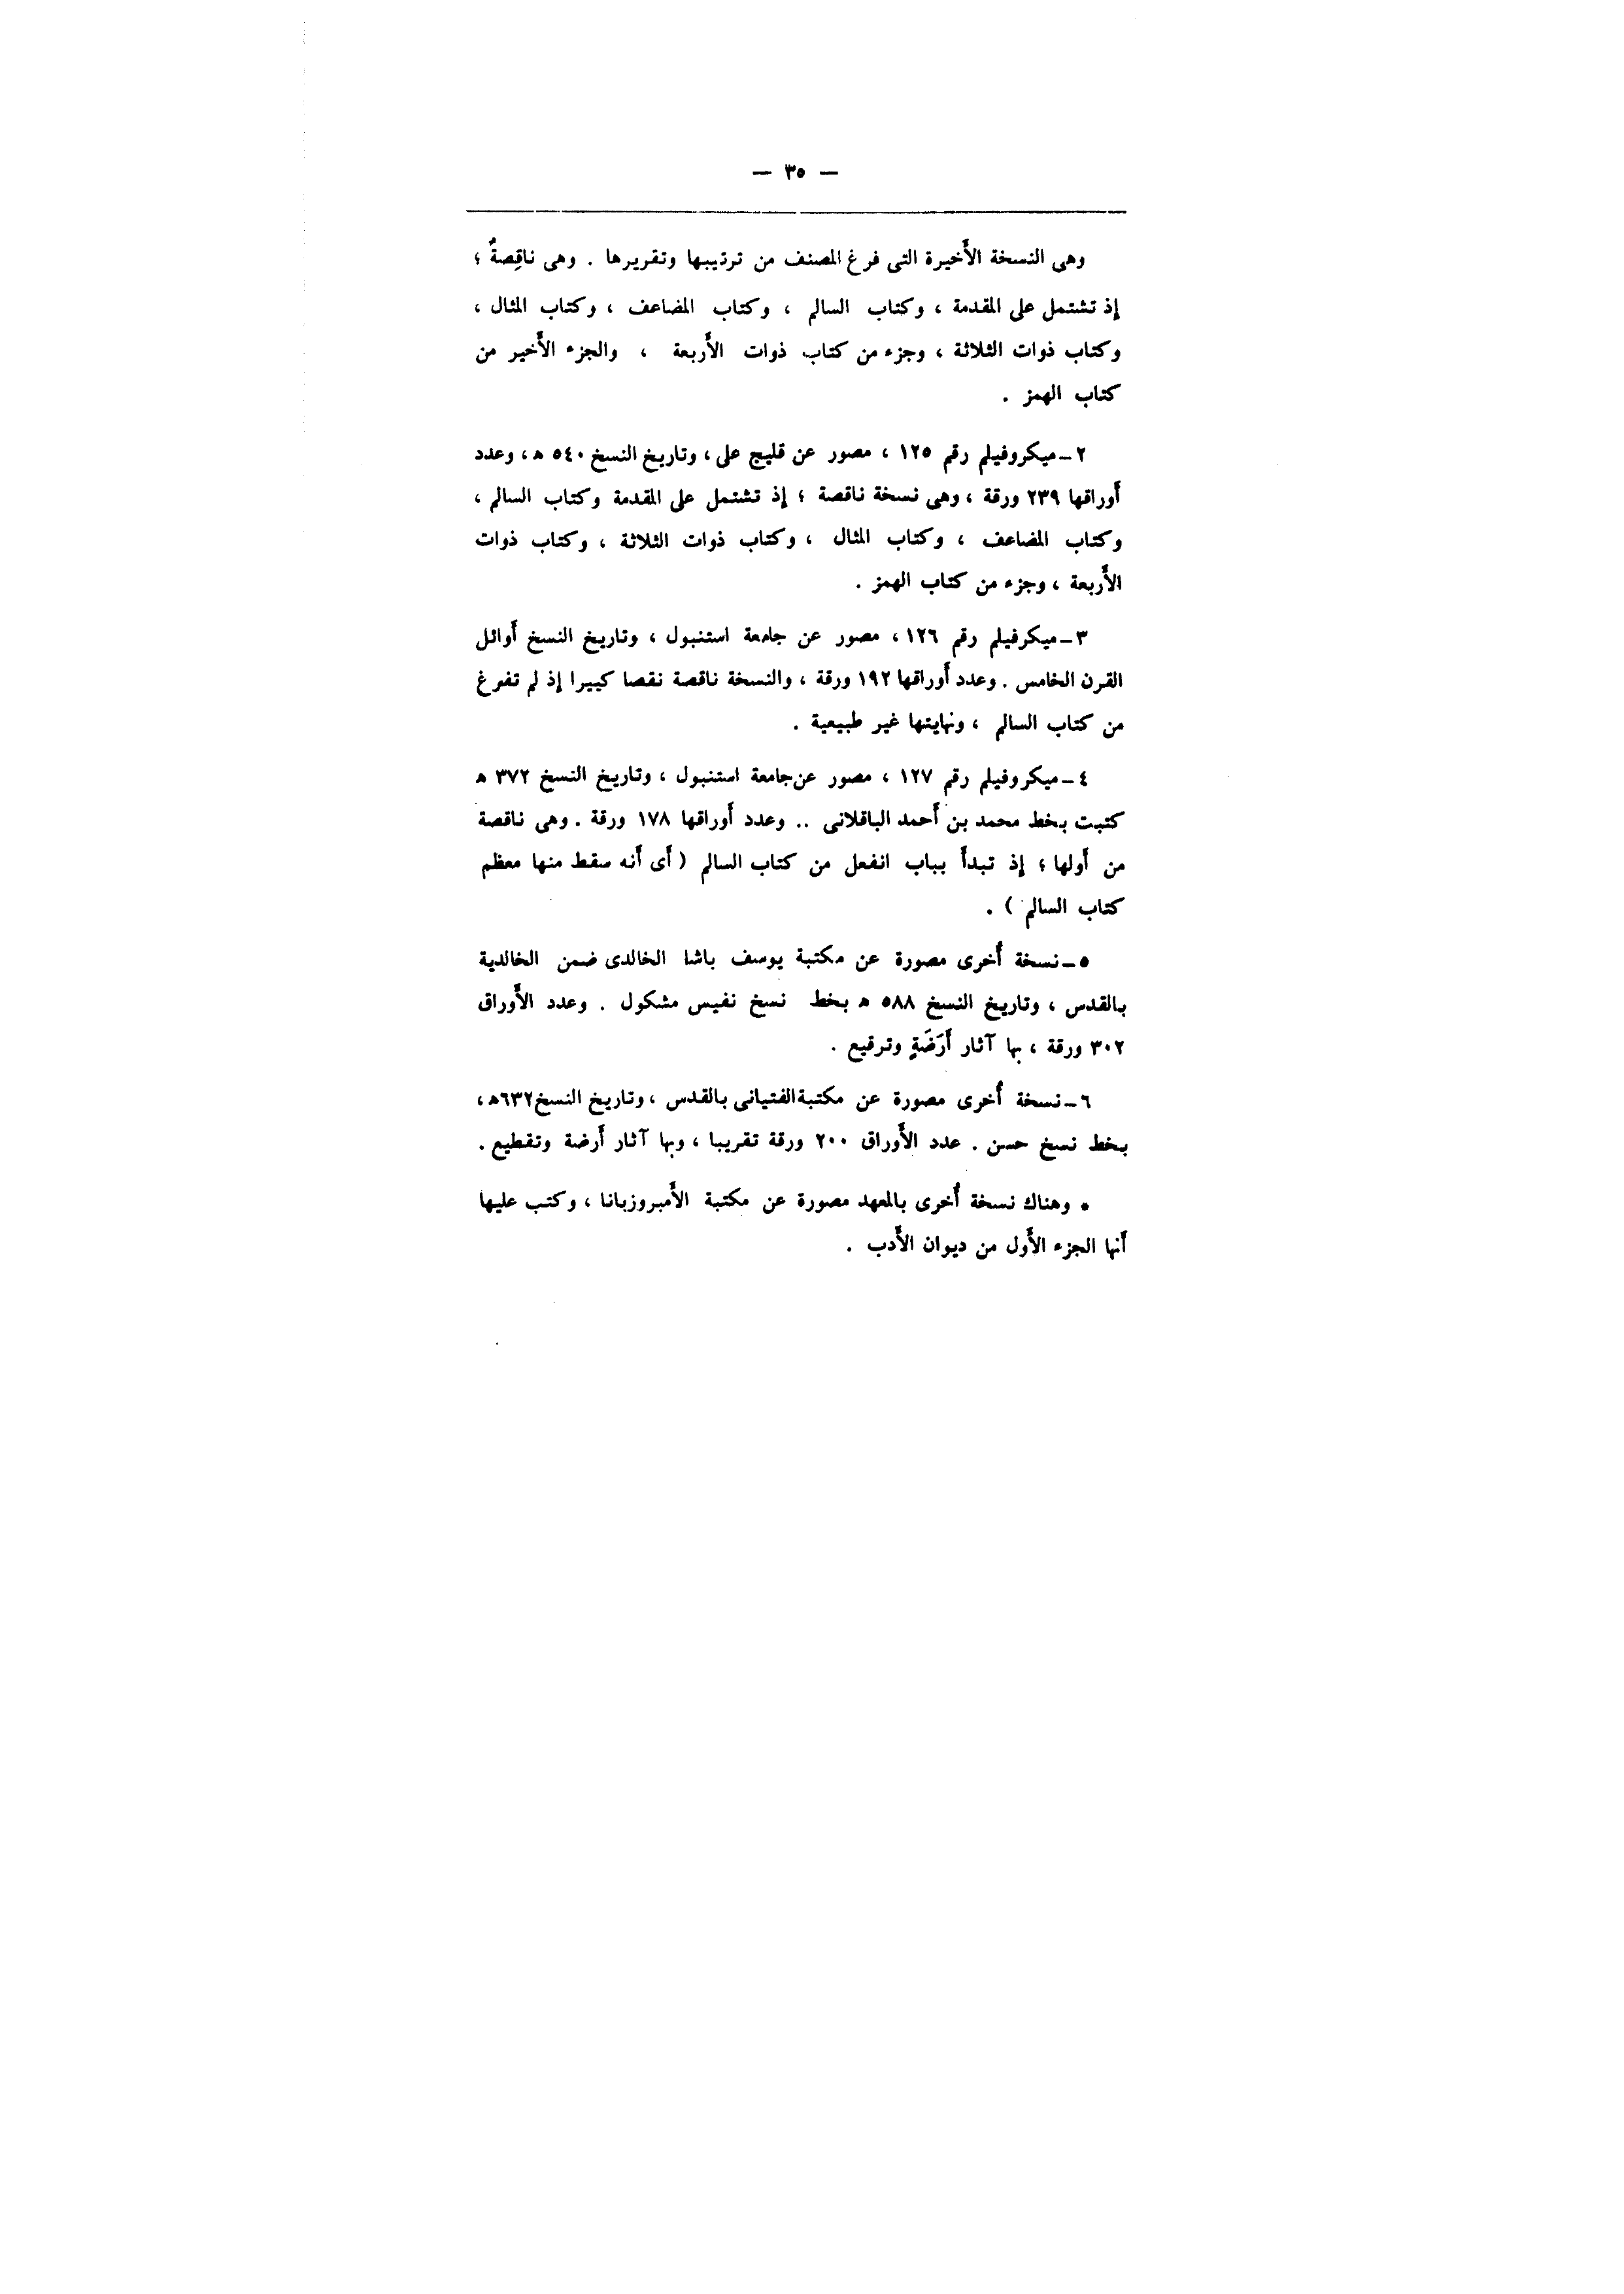 — ٣٥ —
وهى النسخة الأَخيرة التى فرغ المصنف من ترتيبها وتقريرها . وهى ناقِصةٌ ؛
إذ تشتمل على المقدمة ، وكتاب السالم ، وكتاب المضاعف ، وكتاب المثال ،
وكتاب ذوات الثلاثة ، وجزء من كتاب ذوات الأَربعة ، والجزء الأَخير من
كتاب الهمز .
٢ – ميكروفيلم رقم ١٢٥ ، مصور عن قليج على ، وتاريخ النسخ ٥٤٠ ه ، وعدد
أَوراقها ٢٣٩ ورقة ، وهى نسخة ناقصة ؛ إذ تشتمل على المقدمة وكتاب السالم ،
وكتاب المضاعف ، وكتاب المثال ، وكتاب ذوات الثلاثة ، وكتاب ذوات
الأَربعة ، وجزء من كتاب الهمز .
٣ – ميكرفيلم رقم ١٢٦ ، مصور عن جامعة استنبول ، وتاريخ النسخ أَوائل
القرن الخامس . وعدد أَوراقها ١٩٢ ورقة ، والنسخة ناقصة نقصا كبيرا إذ لم تفرغ
من كتاب السالم ، ونهايتها غير طبيعية .
٤ – ميكروفيلم رقم ١٢٧ ، مصور عن جامعة استنبول ، وتاريخ النسخ ٣٧٢ ه
كتبت بخط محمد بن أَحمد الباقلانى .. وعدد أَوراقها ١٧٨ ورقة . وهى ناقصة
من أَولها ؛ إذ تبدأَ بباب انفعل من كتاب السالم ( أَى أَنه سقط منها معظم
كتاب السالم ) .
٥ – نسخة أُخرى مصورة عن مكتبة يوسف باشا الخالدى ضمن الخالدية
بالقدس ، وتاريخ النسخ ٥٨٨ ه بخط نسخ نفيس مشكول . وعدد الأَوراق
٣٠٢ ورقة ، بها آثار أَرَضَةٍ وترقيع .
٦ – نسخة أُخرى مصورة عن مكتبة الفتيانى بالقدس ، وتاريخ النسخ ٦٣٢ه ،
بخط نسخ حسن . عدد الأَوراق ٢٠٠ ورقة تقريبا ، وبها آثار أَرضة وتقطيع .
* وهناك نسخة أُخرى بالمعهد مصورة عن مكتبة الأَمبروزبانا ، وكتب عليها
أَنها الجزء الأَول من ديوان الأَدب .